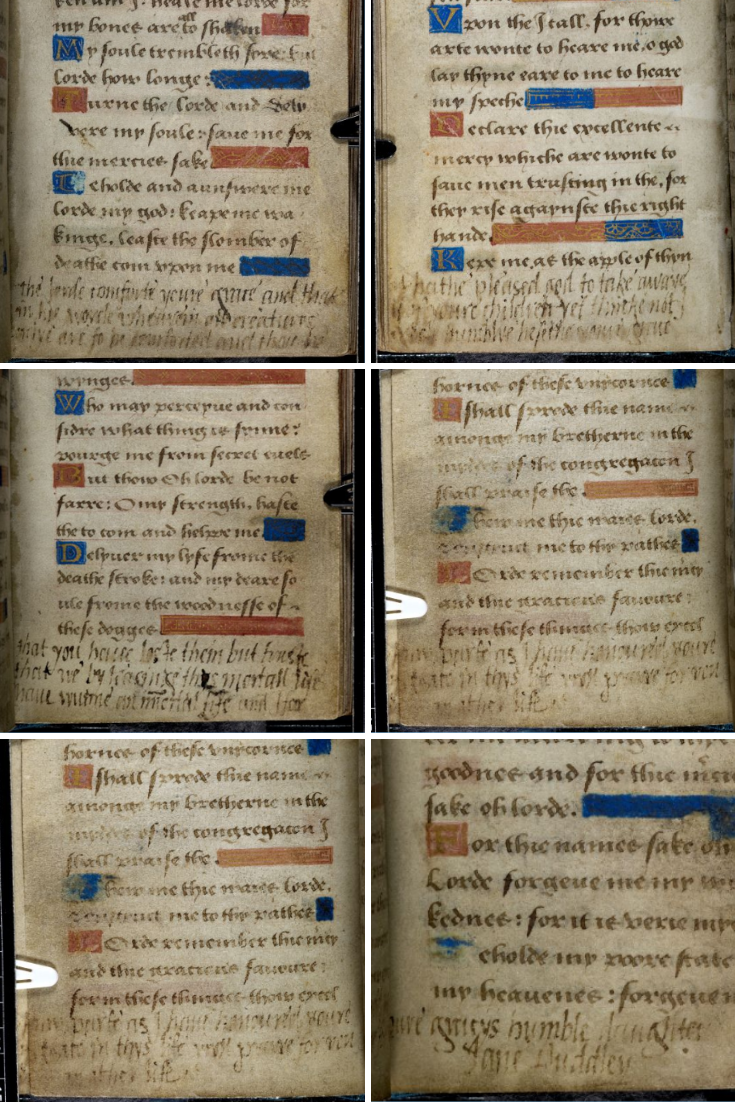 my bones are all to shaken
My soule trembleth sore: but
lorde how longe:
Turne the lorde and dely
vere my soule: saue me for
thie mercies sake
Beholde and aunswere me
lorde my god: keape me wa
kinge, leaste the slomber of
deathe com vpon me
the lorde comforte youre grace and that
in his worde wherein all creatures
onlye are to be comforted and thoughe
Vpon the I call. for thowe
arte wonte to heare me, o god
lay thyne eare to me to heare
my speche
Declare thie excellente
mercy whiche are wonte to
saue men trusting in the, for
they rise agaynste thie right
hande.
Kepe me, as the apple of thyn
it hathe pleased god to take awaye
ij of youre children yet thincke not
I most humblye beseche youre grace
wynges.
Who may perceyue and con
sidre what thing is synne:
pourge me from secret euels
But thow Oh lorde be not
farre: O my strength, haste
the to com and helpe me.
Delyuer my lyfe frome the
deathe stroke: and my deare so
ule frome the woodnesse of
these dogges
that you haue loste them but truste
that we by leauinge this mortall life
haue wunne an immortal life and I for
hornes of these vnycornes
I shall sprede thie name
amonge my bretherne in the
myddes of the congregacon I
shall praise the.
Shew me thie waies lorde,
me to thy pathes
LOrde remember thie mcy
and thie gracious fauoure:
for in these thinges thow excel
my parte as I haue honoured youre
grace in thys life wyll praye for you
in another life
hornes of these vnycornes
I shall sprede thie name
amonge my bretherne in the
myddes of the congregacon I
shall praise the.
Shew me thie waies lorde,
me to thy pathes
LOrde remember thie mcy
and thie gracious fauoure:
for in these thinges thow excel
my parte as I haue honoured youre
grace in thys life wyll praye for you
in another life
goodnes and for thie mcie
sake oh lorde.
For thie names sake oh
Lorde forgeue me my wy
kednes: for it is verie my
eholde my poore state
my heauenes: forgeue
youre gracys humble daughter
Jane Duddley